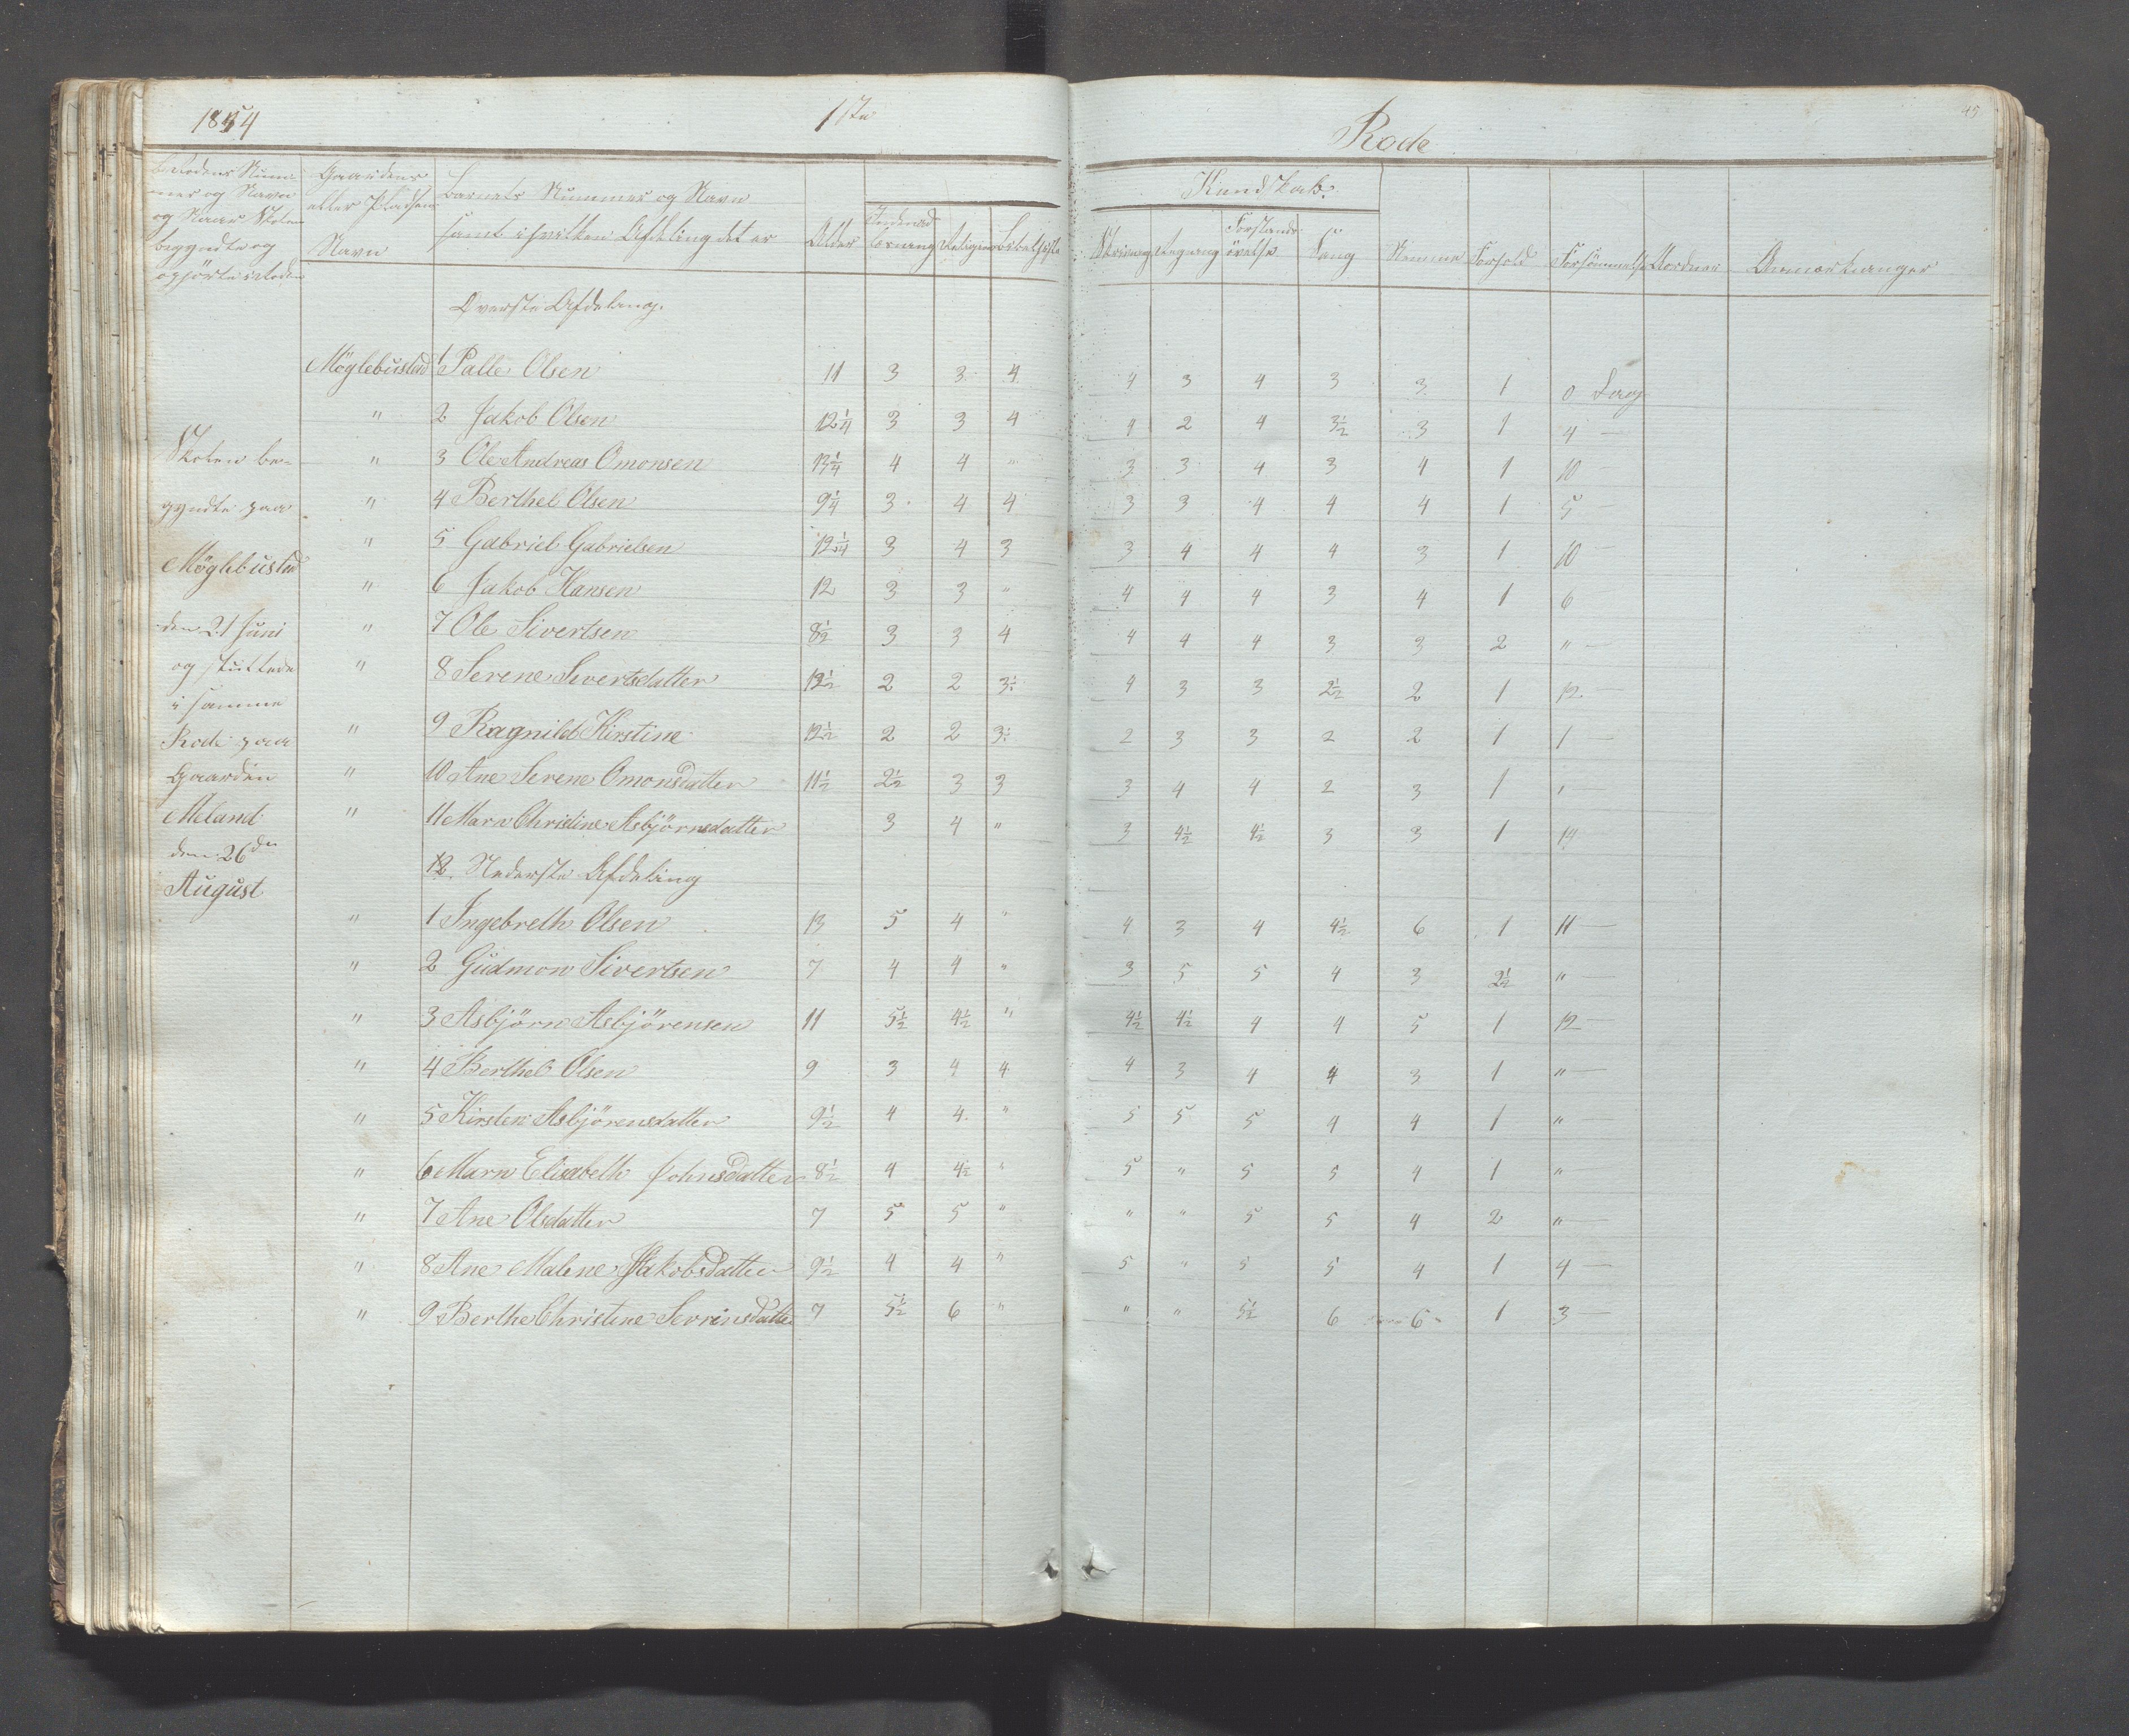 1854
1ste
Rode
45
Rodens Num-
mer og Navn
og Naar Skolen
begyndte og
ophörte i Roden
Gaardens
eller Pladsens
Navn
Barnets Nummer og Navn
samt i hvilken Afdeling det er
Alder
Religion
Bibelhist
Kundskab:
Skrivning
Regning
Forstands-
övelse
Sang
Nemme
Forhold
Forsömmelse
Anmærkninger
Överste Afdeling.
Möglebustad 1 Palle Olsen 11 3 3 4 4 3 4 3 3 1 0 Dag
" 2 Jakob Olsen 12 1/4 3 3 4 4 2 4 3 1/2 3 1 4 —
" 3 Ole Andreas Omonsen 13 1/4 4 4 " 3 3 4 3 4 1 10
" 4 Berthel Olsen 9 1/4 3 4 4 3 3 4 4 4 1 5
" 5 Gabriel Gabrielsen 12 1/4 3 4 3 3 4 4 4 3 1 10
" 6 Jakob Hansen 12 3 3 " 4 4 4 3 4 1 6
" 7 Ole Sivertsen 8 1/2 3 3 4 4 4 4 3 3 2 " —
" 8 Serene Sivertsdatter 12 1/2 2 2 3 1/2 4 3 3 2 1/2 2 1 12 —
" 9 Ragnild Kirstine 12 1/2 2 2 3 1/2 2 3 3 2 2 1 1 —
" 10 Ane Serene Omonsdatter 11 1/2 2 1/2 3 3 3 4 4 2 3 1
" 11 Marn Christine Asbjörnsdatter 3 4 " 3 4 1/2 4 1/2 3 3 1 14
12. Nederste Afdeling
" 1 Ingebreth Olsen 13 5 4 " 4 3 4 4 1/2 6 1 11 —
" 2 Gudmon Sivertsen 7 4 4 " 3 5 5 4 3 2 1/2 " —
" 3 Asbjörn Asbjörensen 11 5 1/2 4 1/2 " 4 1/2 4 1/2 4 4 5 1 12 —
" 4 Berthel Olsen 9 3 4 4 4 3 4 4 3 1 " —
" 5 Kirsten Asbjörensdatter 9 1/2 4 4 " 5 5 5 4 4 1 " —
" 6 Marn Elisabeth Johnsdatter 8 1/2 4 4 1/2 " 5 " 5 5 4 1 "
" 7 Ane Olsdatter 7 5 5 " " " 5 5 4 2 " —
" 8 Ane Malene Jakobsdatter 9 1/2 4 4 " 5 " 5 5 4 1 4 —
" 9 Berthe Christine Sevrinsdatter 7 5 1/2 6 " " " 5 1/2 6 6 1 3 —
Skolen be-
gyndte paa
Möglebustad
den 21 Juni
og sluttede
i samme
Rode paa
Gaarden
Meland
den 26de
August